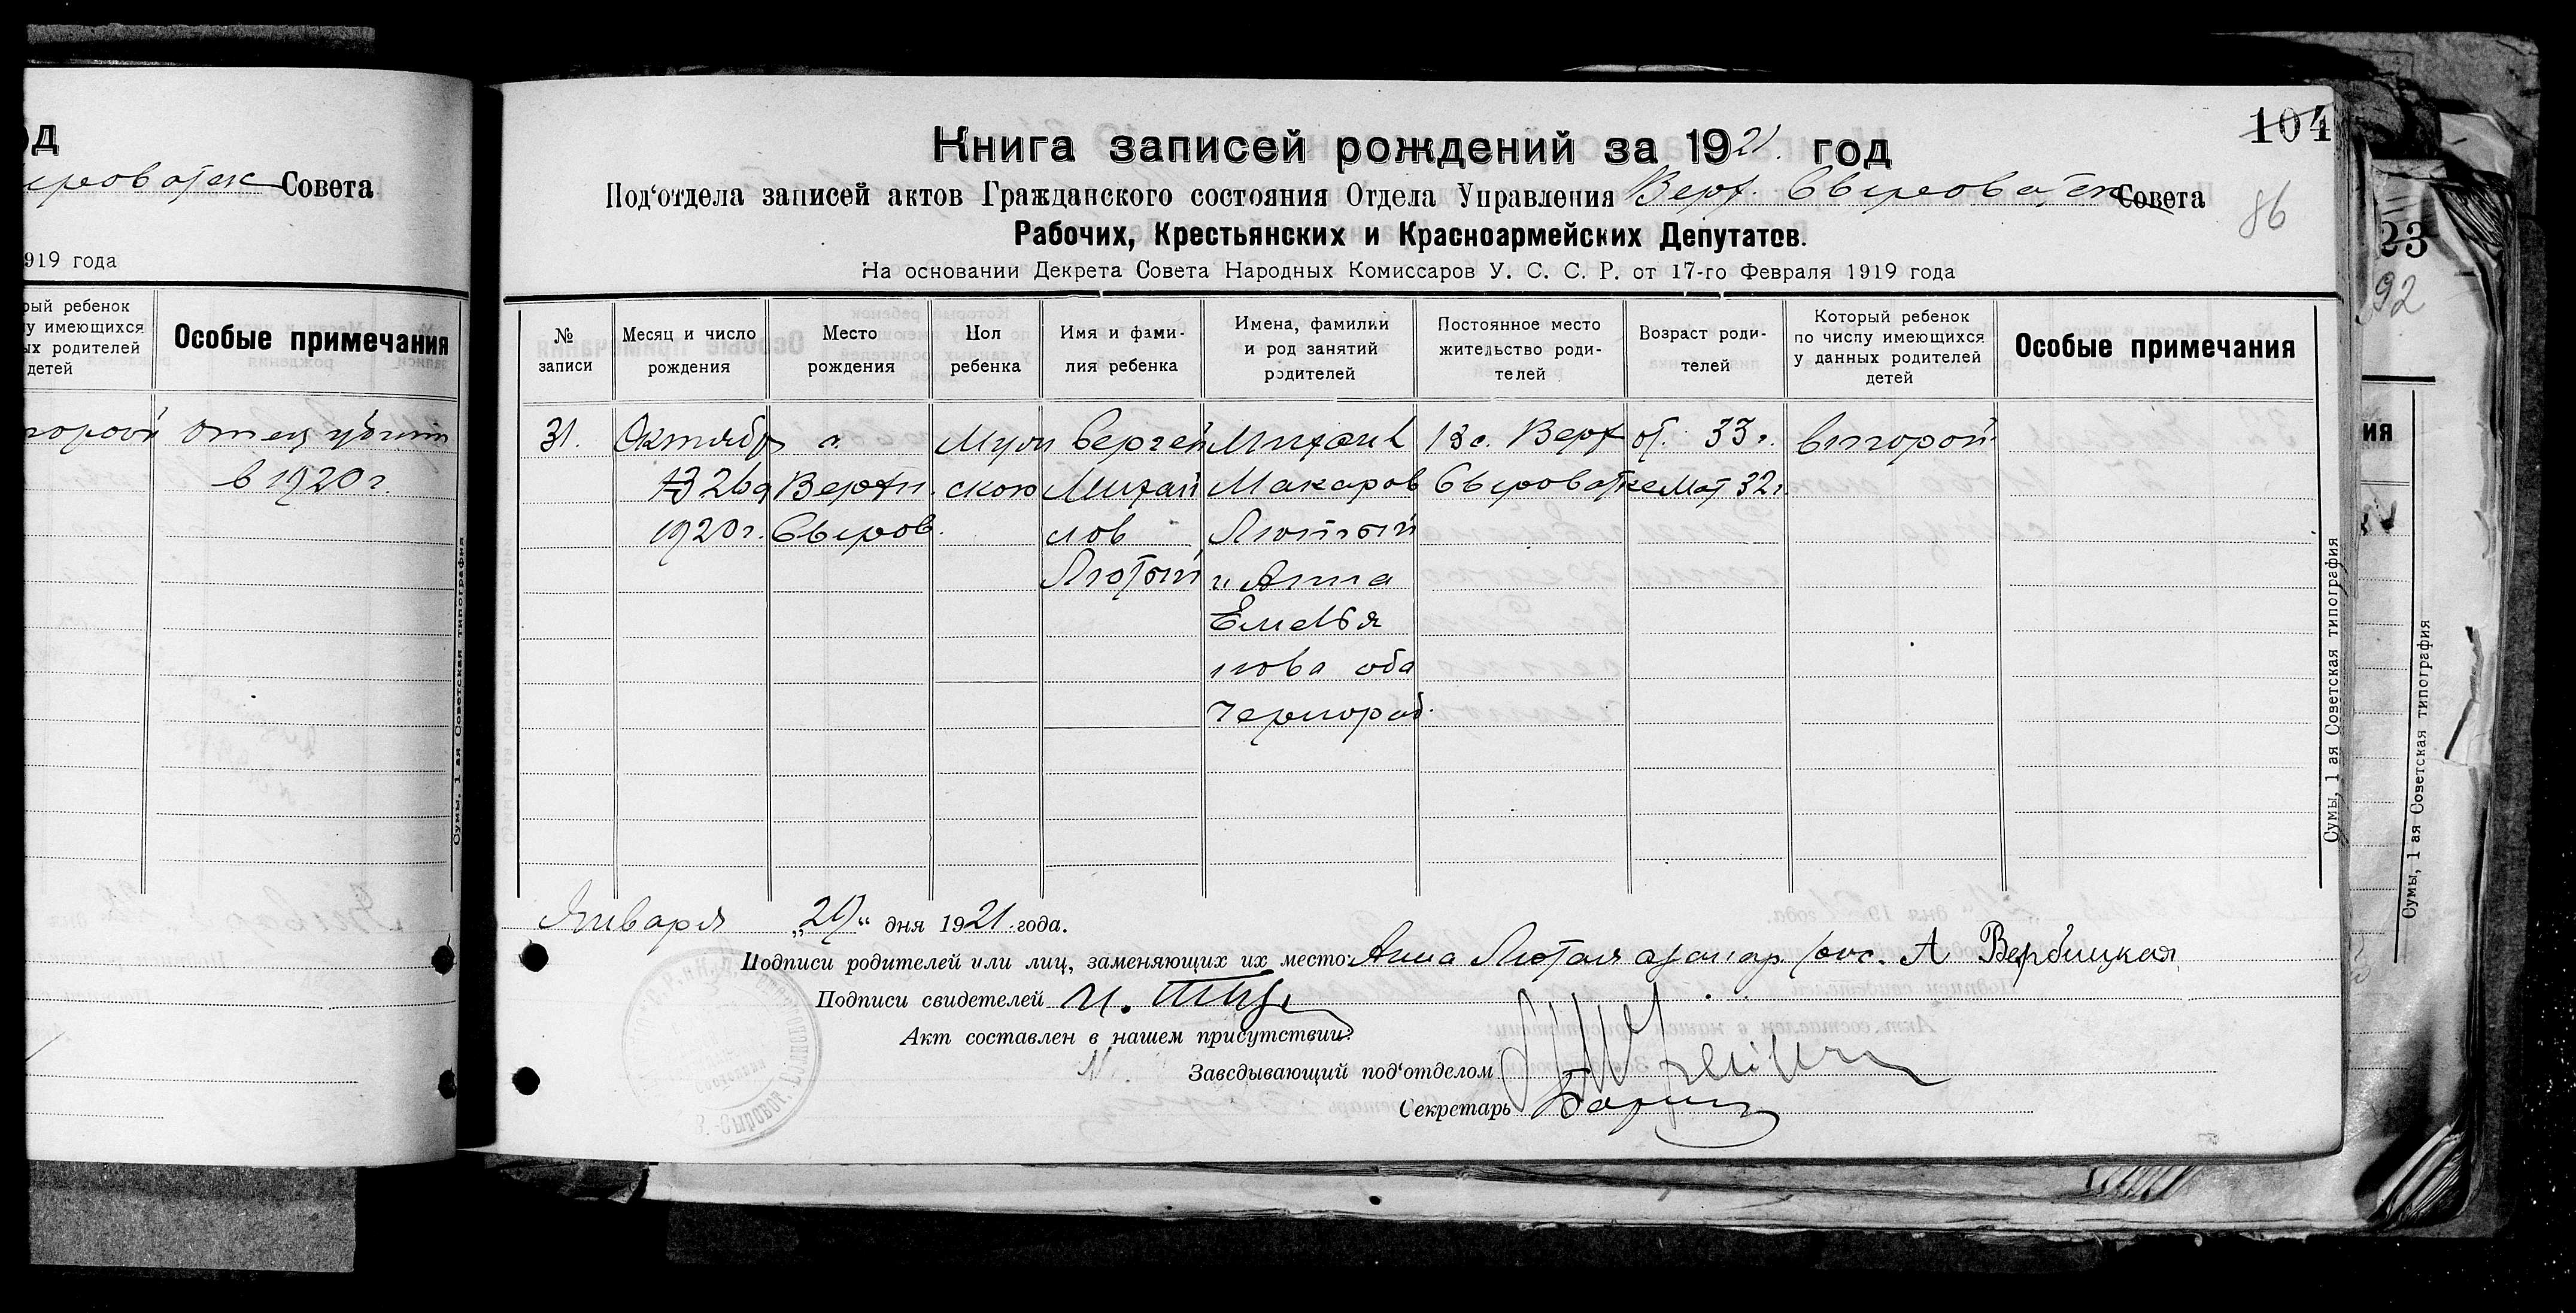 од
Совета
919 года
рый ребенок
у имеющихся
ых родителей
детей
Особые примечания
торой отец убит
в 1920 г.
Сумы, 1 ая Советская типография
104
86
Книга записей рождений за 1921. год
Под‘отдела записей актов Гражданского состояния Отдела Управления Верх. Сыроватск Совета
Рабочих, Крестьянских и Красноармейских Депутатов.
На основании Декрета Совета Народных Комиссаров У. С. С. Р. от 17-го Февраля 1919 года
№
записи
Месяц и число
рождения
Место
рождения
Пол
ребенка
Имя и фами-
лия ребенка
Имена, фамилии
и род занятий
родителей
Постоянное место
жительство роди-
телей
Возраст роди-
телей
Который ребенок
по числу имеющихся
у данных родителей
детей
Особые примечания
31.
Октябр
26
1920 г.
Верхн.
Сыров.
Муж
ской
Сергей
Михай
лов
Лютый
Михаил
Макаров
Лютый
и Анна
Емелья
нова оба
чернораб.
с. Верх
Сыроватке
от. 33 г.
мат 32 г.
второй
Сумы, 1 ая Советская типография
Января „29“ дня 1921 года.
Подписи родителей или лиц, заменяющих их место: Анна Лютая А Вербицкая
Подписи свидетелей И.
Акт составлен в нашем присутствии:
Заведывающий под‘отделом
Секретарь
23
92
ия
Сумы, 1 ая Советская типография